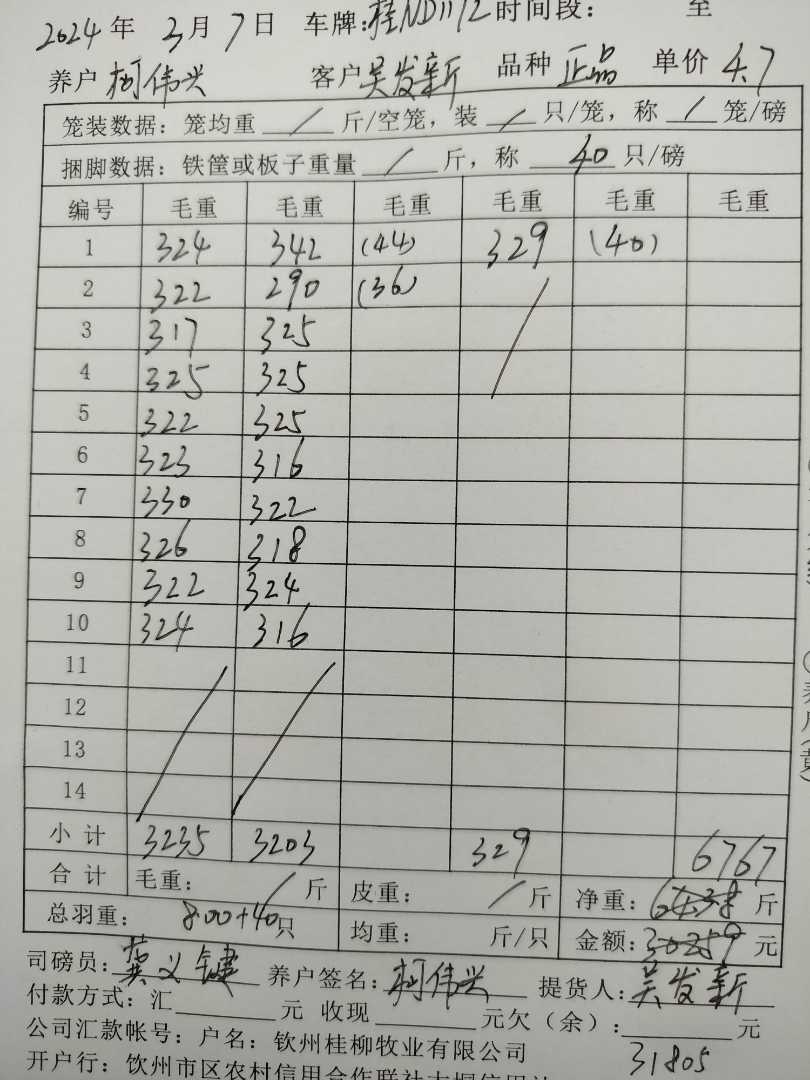 2024 年 3 月 7 日 车牌:桂ND1112 时间段: 至
养户 柯伟兴 客户 吴发新 品种 正品 单价 4.7
笼装数据: 笼均重 / 斤/空笼, 装 / 只/笼, 称 / 笼/磅
捆脚数据: 铁筐或板子重量 / 斤, 称 40 只/磅
编号 毛重 毛重 毛重 毛重 毛重 毛重
1 324 342 (44) 329 (40)
2 322 290 (36)
3 317 325
4 325 325
5 322 325
6 323 316
7 330 322
8 326 318
9 322 324
10 324 316
11
12
13
14
小计 3235 3203 329 6767
合计 毛重: / 斤 皮重: / 斤 净重: 6438 斤
总羽重: 800+40 只 均重: 斤/只 金额: 30259 元
司磅员: 龚义键 养户签名: 柯伟兴 提货人: 吴发新
付款方式: 汇 元 收现 元欠(余): 元
31805
公司汇款帐号: 户名: 钦州桂柳牧业有限公司
开户行: 钦州市区农村信用合作联社